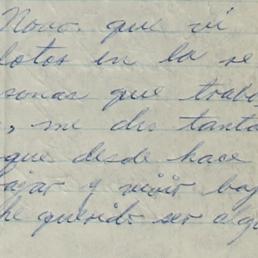 Novo. que vi
lotos en la re
sonas que traba
, me dio tanta
que desde hace
ajar y vivir baj
he querido ser alg